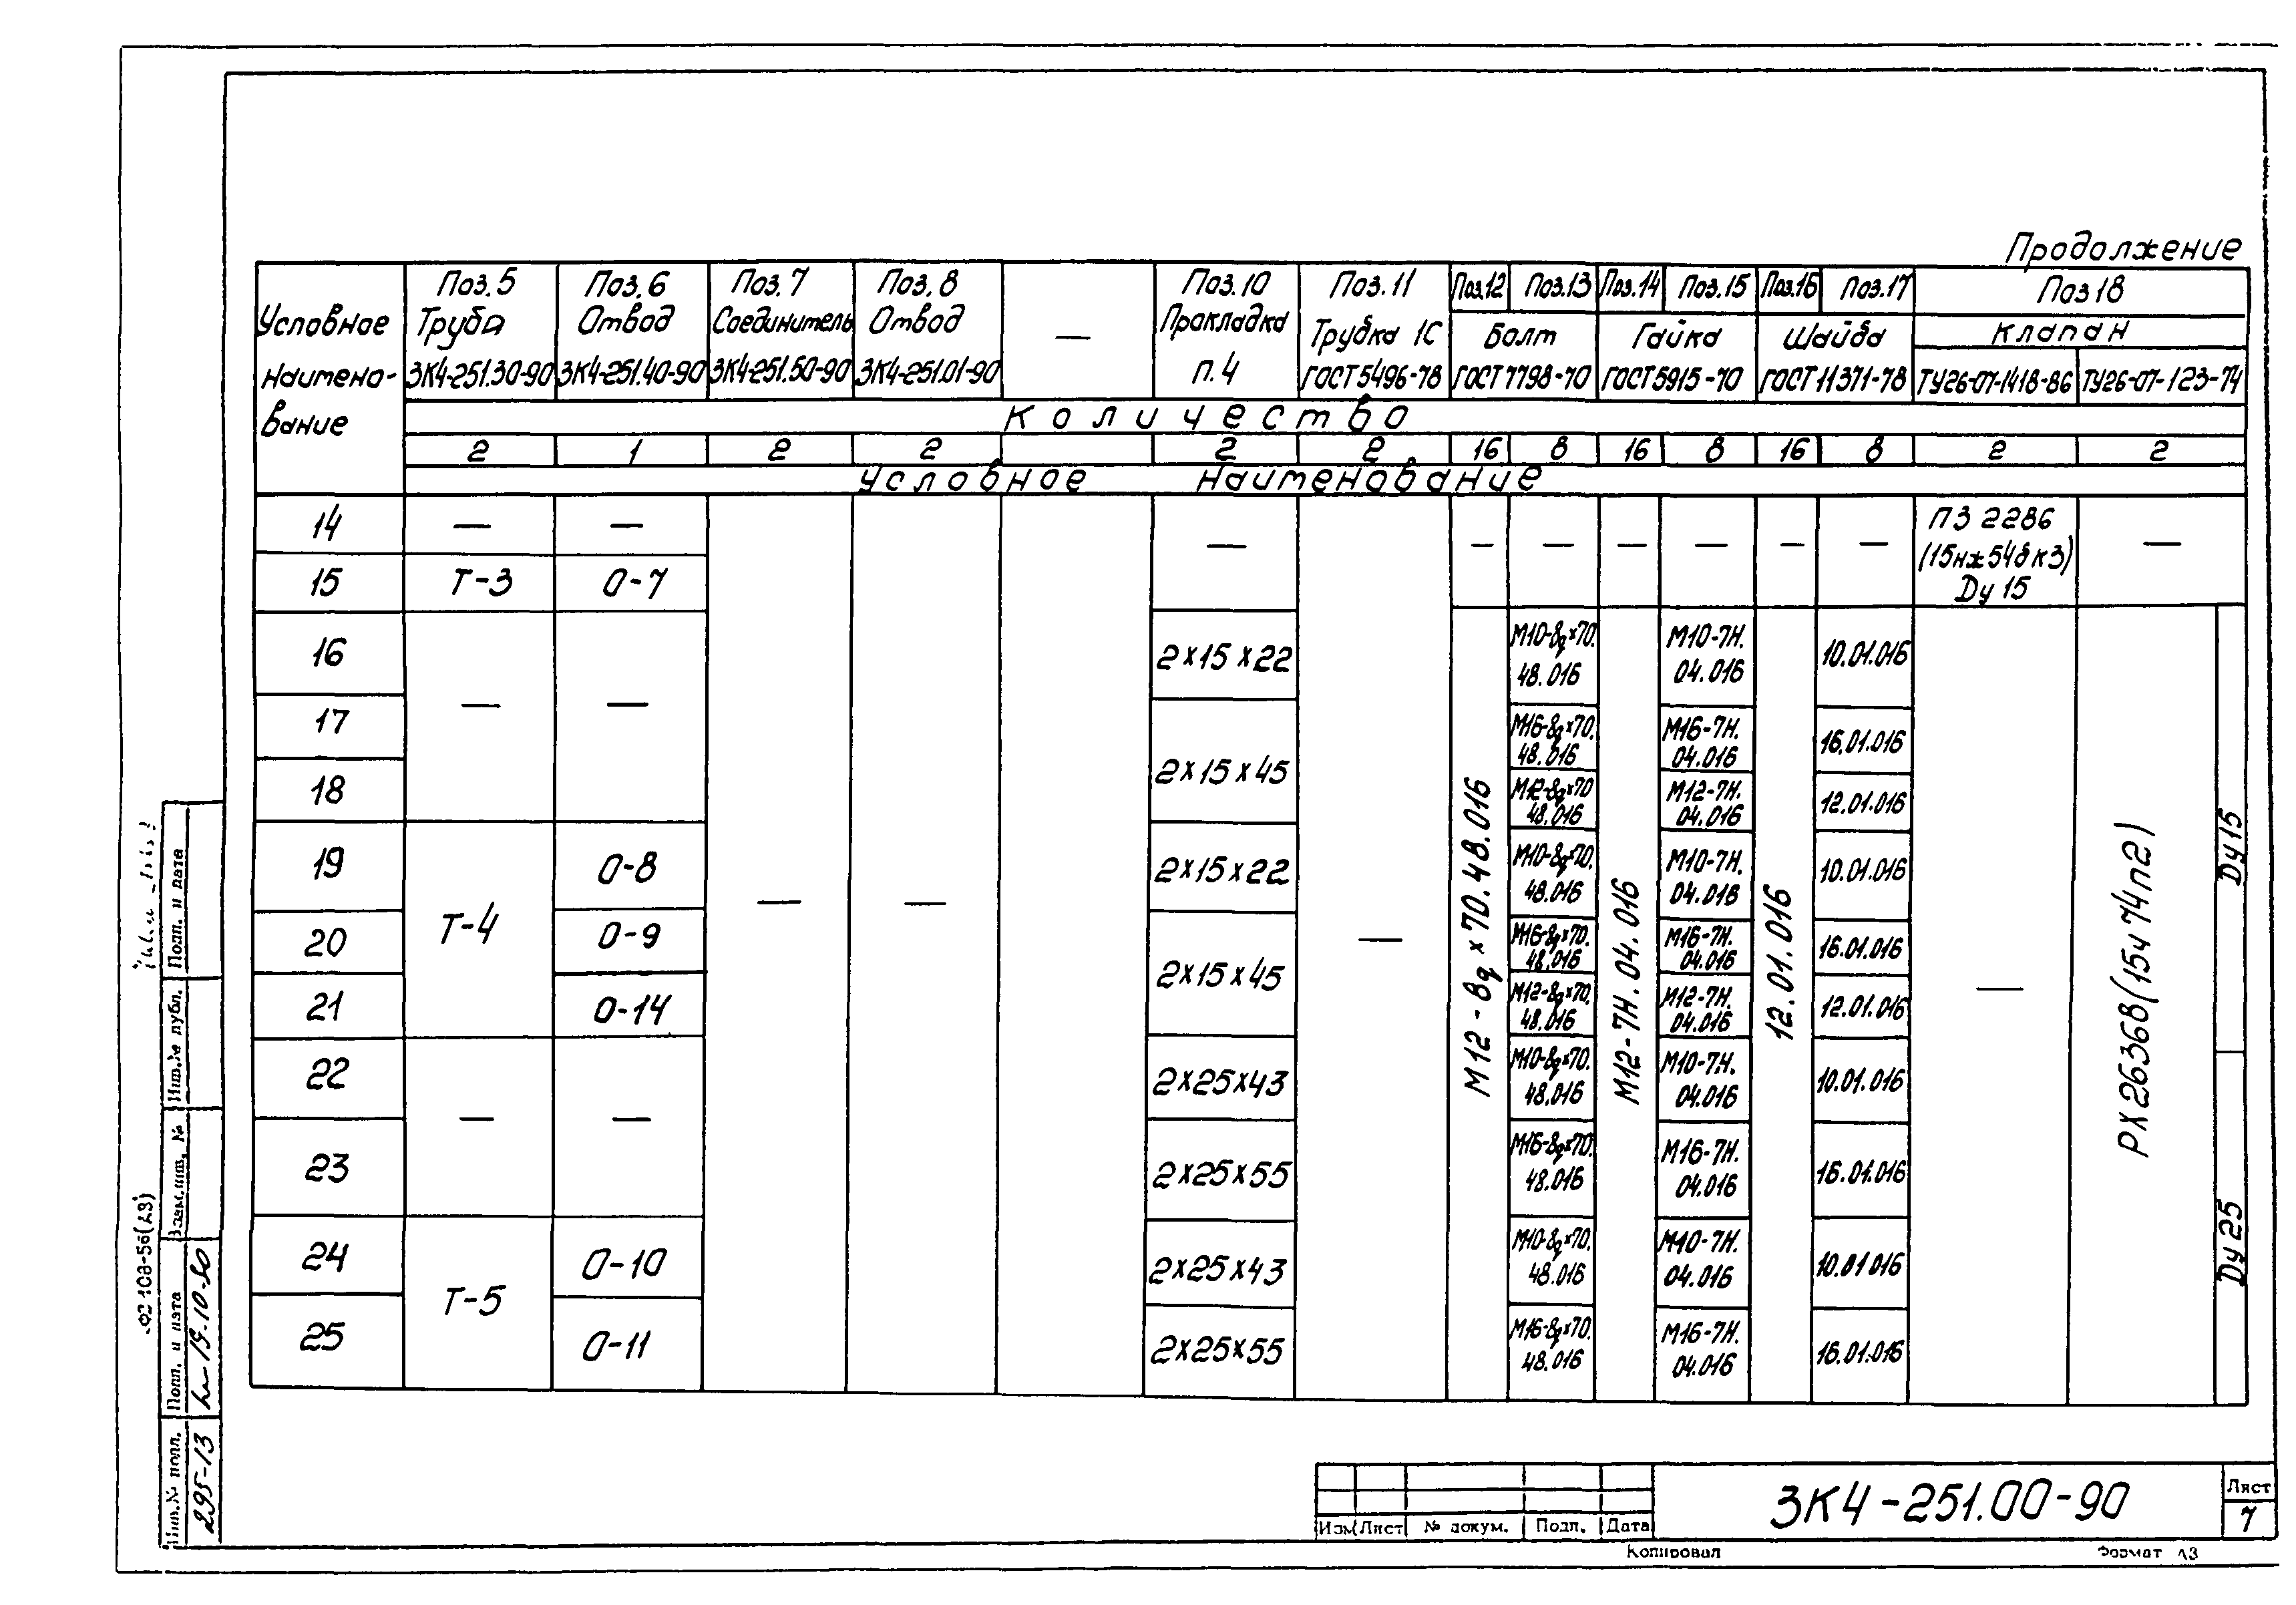 Продолжение
Условное Наимено- вание
Поз.5 Труба ЗК4-251.30-90
Поз.6 Отвод ЗК4-251.40-90
Поз.7 Соединитель ЗК4-251.50-90
Поз.8 Отвод ЗК4-251.01-90
—
Поз.10 Прокладка п.4
Поз.11 Трубка 1С ГОСТ 5496-78
Поз.12 Поз.13 Болт ГОСТ 7798-70
Поз.14 Поз.15 Гайка ГОСТ 5915-70
Поз.16 Поз.17 Шайба ГОСТ 11371-78
Поз 18 Клапан ТУ26-07-1418-86 ТУ26-07-123-74
Количество
2 1 2 2 2 2 16 8 16 8 16 8 2 2
Условное Наименование
14 — — — — — — — — — ПЗ 2286 —
15 Т-3 О-7 (15нж54бк3) Dу 15
16 2×15×22 М10-8g×70. 48.016 М10-7Н. 04.016 10.01.016
17 — — 2×15×45 М16-8g×70. 48.016 М16-7Н. 04.016 16.01.016
18 М12-8g×70 48.016 М12-7Н. 04.016 12.01.016
19 О-8 2×15×22 М10-8g×70. 48.016 М10-7Н. 04.016 10.01.016
Т-4 — — —
20 О-9 2×15×45 М16-8g×70. 48.016 М16-7Н. 04.016 16.01.016
21 О-14 М12-8g×70. 48.016 М12-7Н. 04.016 12.01.016 —
22 2×25×43 М10-8g×70. 48.016 М10-7Н. 04.016 10.01.016
— —
23 2×25×55 М16-8g×70. 48.016 М16-7Н. 04.016 16.01.016
24 О-10 2×25×43 М10-8g×70. 48.016 М10-7Н. 04.016 10.01.016
Т-5
25 О-11 2×25×55 М16-8g×70. 48.016 М16-7Н. 04.016 16.01.016
М12-8g×70.48.016
М12-7Н.04.016
12.01.016
РХ26368(15ч74п2)
Dу 15
Dу 25
Подп. и дата
Инв.№ дубл.
Взам.инв. №
Подп. и дата
19-10-90
Инв.№ подл.
295-13
Изм Лист № докум. Подп. Дата
ЗК4-251.00-90
Лист
7
Копировал
Формат А3